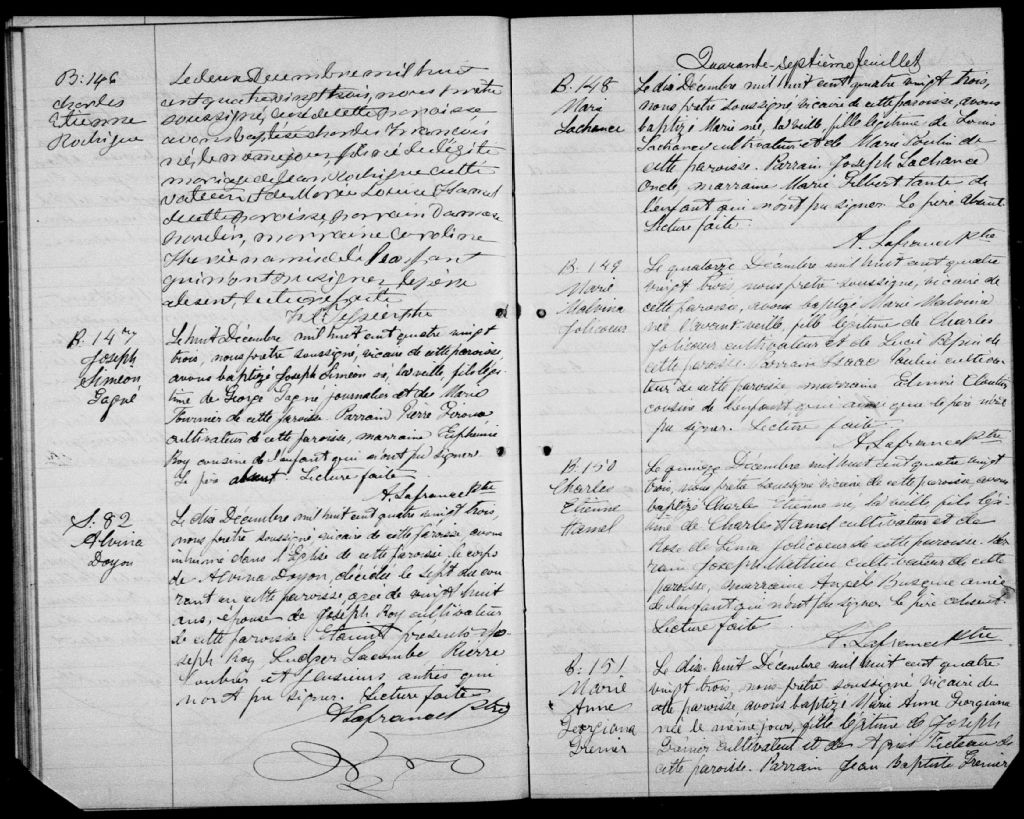 B: 146
Charles
Etienne
Rodrigue
Le deux Decembre mil huit
cent quatre vingt trois, nous prêtre
soussigné, curé de cette paroisse,
avons baptisé Charles Francois
né, le même jour, du légitime
mariage de Jean Rodrigue culti
vateur et de Marie Louise Hamel
de cette paroisse, parrain Damase
Poulin, marraine Caroline
de l'enfant
qui n'ont pu signer, le père
absent, lecture faite
Ptre
B. 147
Joseph
Simeon
Gagné
Le huit Décembre mil huit cent quatre vingt
trois, nous prêtre soussigné, vicaire de cette paroisse,
avons baptizé Joseph Simeon né, la veille, fils légi-
time de George Gagné journalier et de Marie
Fournier de cette paroisse. Parrain Pierre
cultivateur de cette paroisse, marraine Euphemie
Roy cousine de l'enfant qui n'ont pu signer
Le père absent. Lecture faite
A. Lafrance Ptre
S. 82
Alvina
Doyon
Le dix Décembre mil huit cent quatre vingt trois,
nous prêtre soussigné, vicaire de cette paroisse, avons
inhumé dans l'Eglise de cette paroisse le corps
de Alvina Doyon, décédée le sept du cou
rant en cette paroisse, agée de vingt huit
ans, épouse de Joseph Roy cultivateur
de cette paroisse. Etaient presents Jo-
seph Roy Ludger Lacombe Pierre
et plusieurs autres qui
n'ont pu signer. Lecture faite
A. Lafrance Ptre
Quarante-septième feuillet
B. 148
Marie
Lachance
Le dix Décembre mil huit cent quatre vingt trois,
nous prêtre soussigné, vicaire de cette paroisse, avons
baptizé Marie née, la veille, fille légitime de Louis
Lachance cultivateur et de Marie Poulin de
cette paroisse. Parrain Joseph Lachance
oncle, marraine Marie Gilbert tante de
l'enfant qui n'ont pu signer. Le père absent
Lecture faite.
A. Lafrance Ptre
B. 149
Marie
Malvina
Jolicoeur
Le quatorze Décembre mil huit cent quatre
vingt trois nous prêtre soussigné, vicaire de
cette paroisse, avons baptizé Marie Malvina
née l'avant-veille, fille légitime de Charles
Jolicoeur cultivateur et de Lucie Pepin de
cette paroisse. Parrain Isaac Poulin cultiva-
teur de cette paroisse marraine Cloutier
cousins de l'enfant qui ainsi que le père n'ont
pu signer. Lecture faite
A. Lafrance Ptre
B. 150
Charles
Etienne
Hamel
Le quinze Décembre mil huit cent quatre vingt
trois, nous prêtre soussigné vicaire de cette paroisse avons
baptizé Charle Etienne né, la veille fils légi-
time de Charles Hamel cultivateur et de
Rose de Lima Jolicoeur de cette paroisse. Par-
rain Joseph Mathieu cultivateur de cette
paroisse, marraine Busque amie
de l'enfant qui n'ont pu signer. Le père absent.
Lecture faite.
A. Lafrance Ptre
B. 151
Marie
Anne
Georgiana
Grenier
Le dix-huit Décembre mil huit cent quatre
vingt trois, nous prêtre soussigné vicaire de
cette paroisse avons baptizé Marie Anne Georgiana
née le même jour, fille légitime de Joseph
Grenier cultivateur et de Agnès de
cette paroisse. Parrain Jean Baptiste Grenier